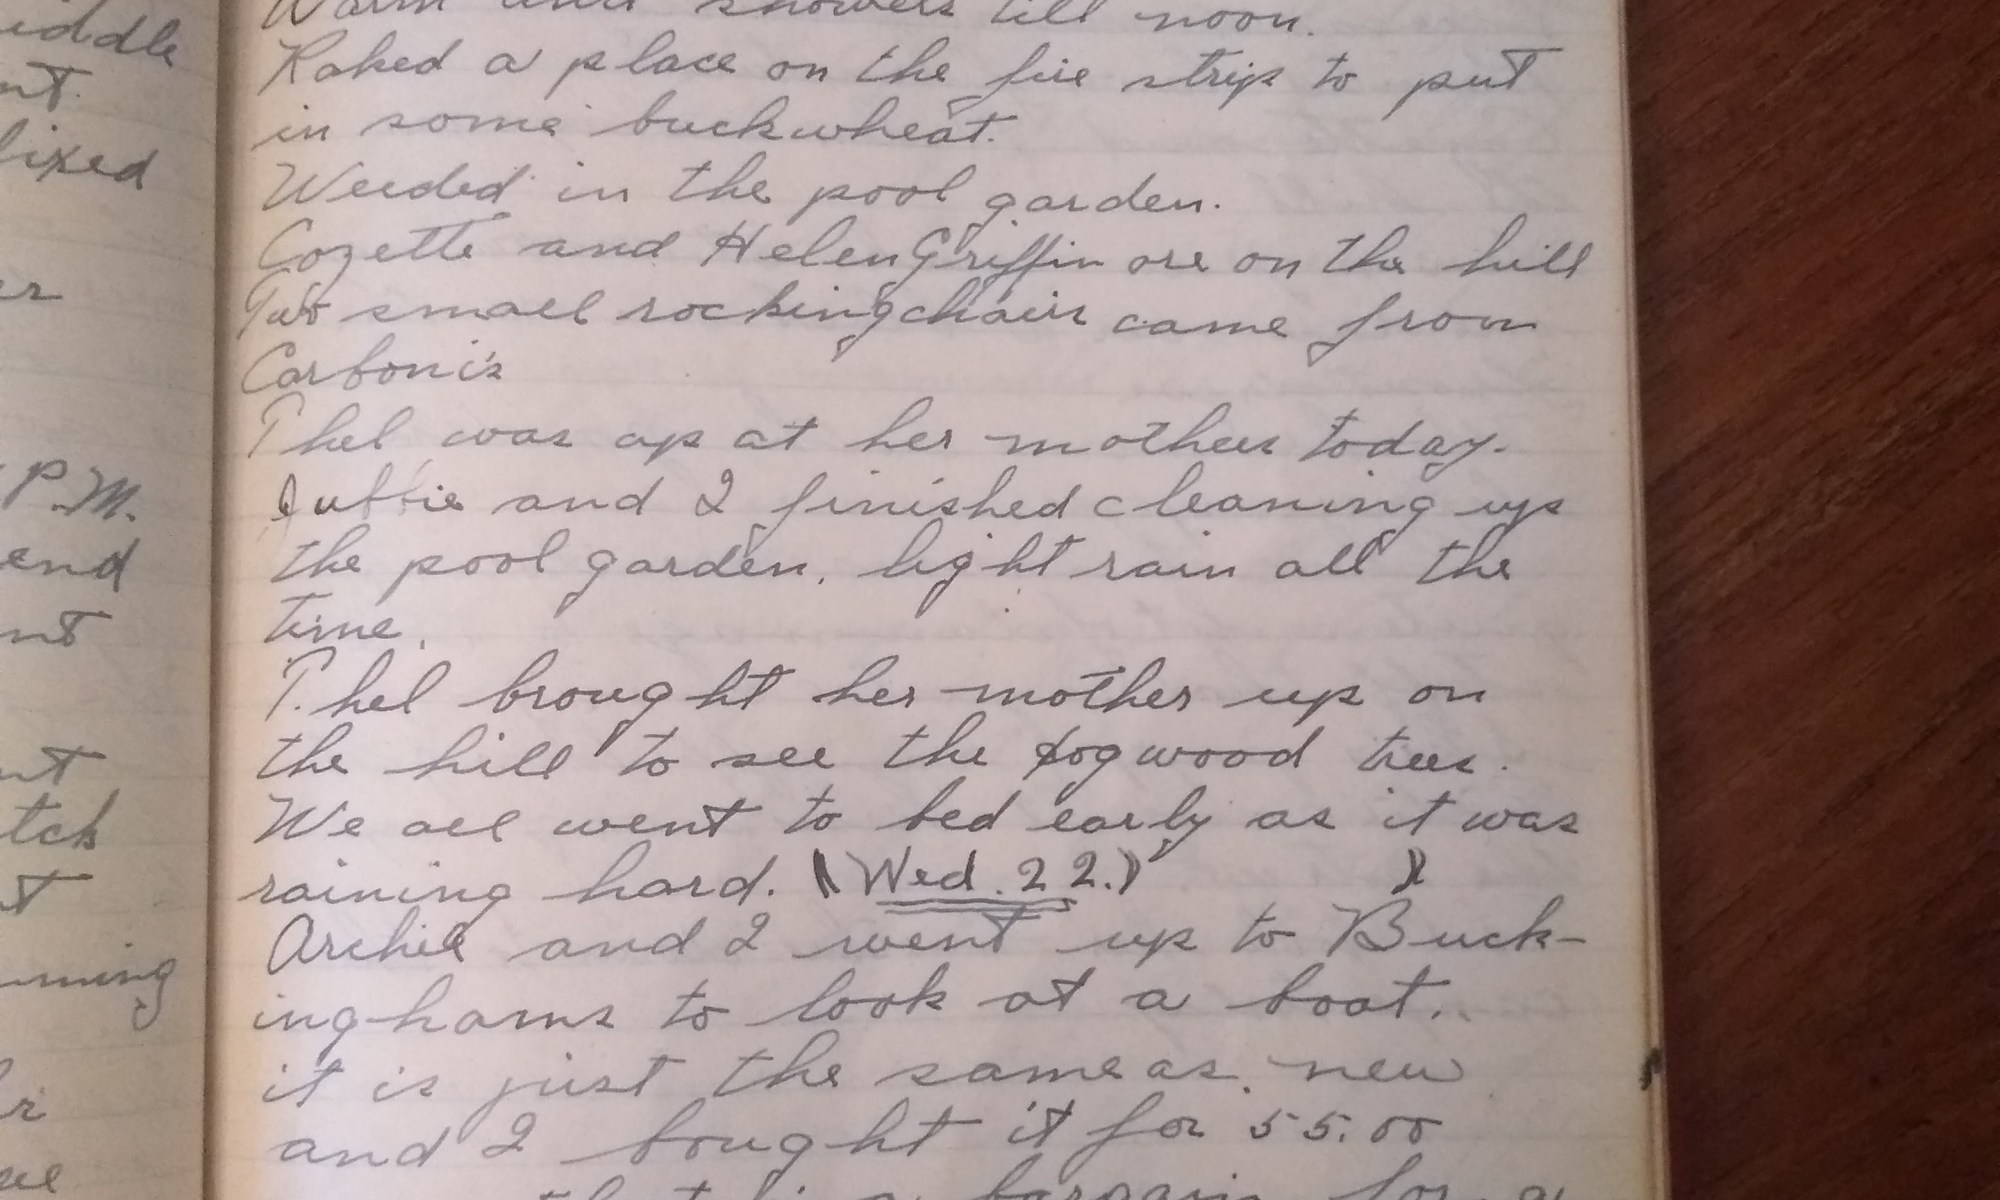 iddle
nt.
fixed
er
P.M.
end
nt
nt
tch
t
mming
r
Warm and showers till noon.
Raked a place on the fire strip to put
in some buckwheat.
Weeded in the pool garden.
Cozette and Helen Griffin are on the hill
Two small rockingchairs came from
Carboni's
Thel was up at her mothers today.
and I finished cleaning up
the pool garden, light rain all the
time.
Thel brought her mother up on
the hill to see the dogwood trees.
We all went to bed early as it was
raining hard. (Wed. 22.)
Archie and I went up to Buck-
inghams to look at a boat.
it is just the same as new
and I bought it for 55.00
a bargain for a